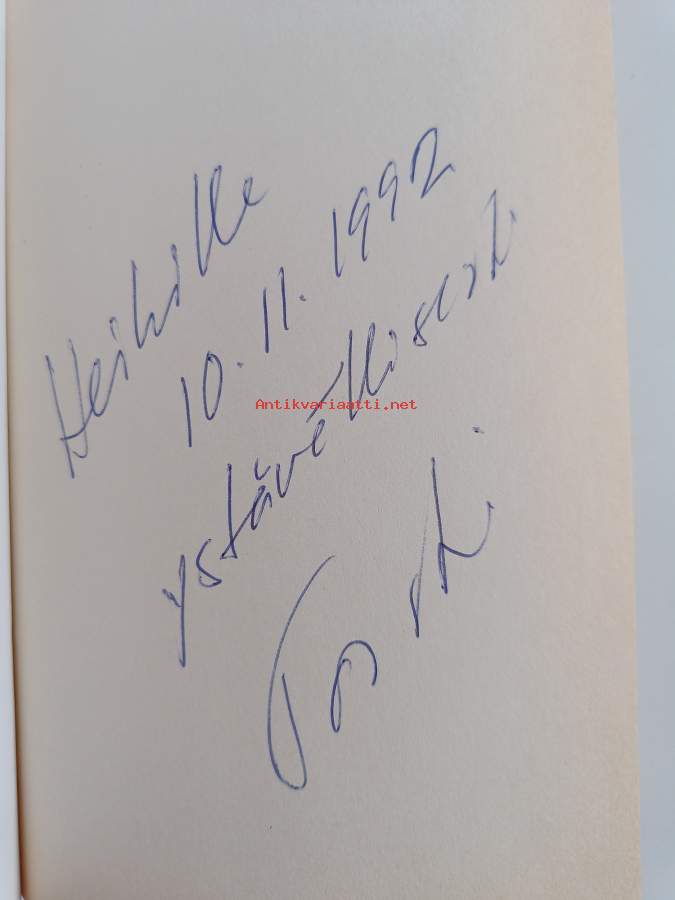 Heikille
10.11.1992
ystävällisesti
Antikvariaatti.net